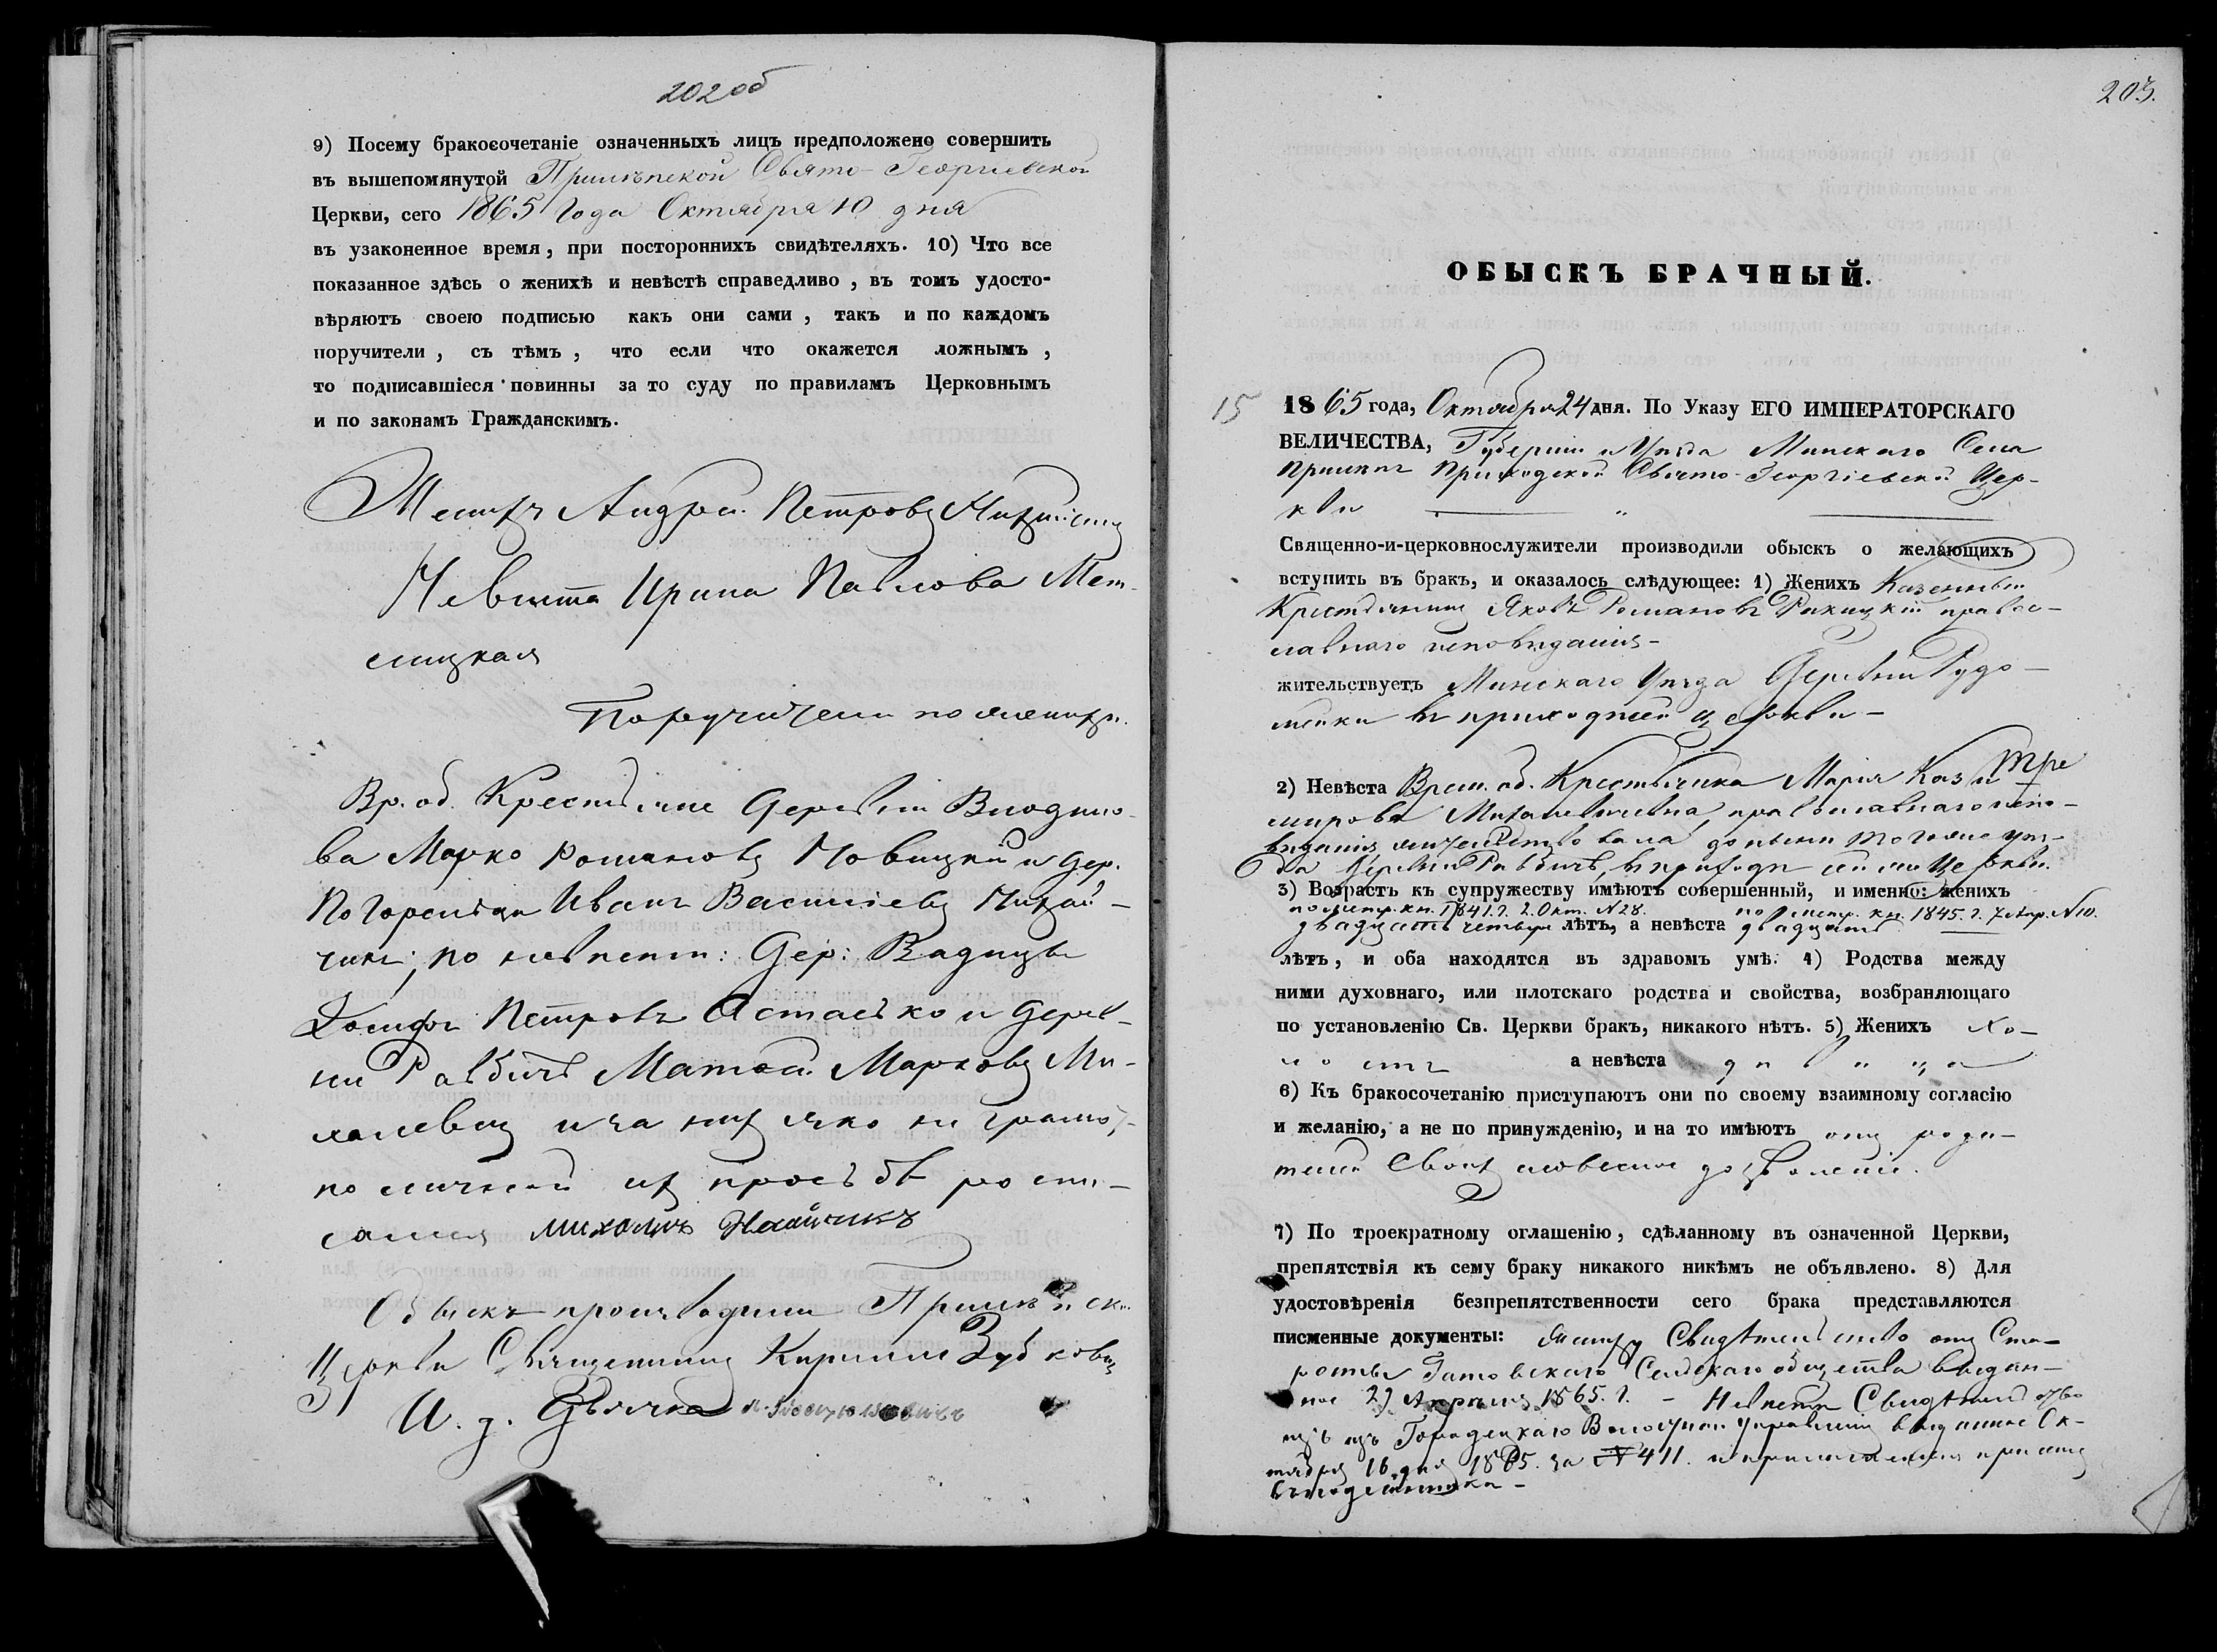 202об
9) Посему бракосочетаніе означенныхъ лицъ предположено совершить
въ вышепомянутой Прилѣпской Свято-Георгіевской
Церкви, сего 1865 года Октября 10 дня
въ узаконенное время, при постороннихъ свидѣтеляхъ. 10) Что все
показанное здѣсь о женихѣ и невѣстѣ справедливо, въ томъ удосто-
вѣряютъ своею подписью какъ они сами, такъ и по каждомъ
поручители, съ тѣмъ, что если что окажется ложнымъ,
то подписавшіеся повинны за то суду по правиламъ Церковнымъ
и по законамъ Гражданскимъ.
Женихъ Андрей Петровъ
Невѣста Ирина Павлова
Поручители по женихѣ
Вр. об. Крестьяне Деревни
Марко Романовъ Новицкій и дер.
Иванъ Васильевъ
по невѣстѣ: Дер:
Петровъ и дерев-
ни Равбичь Матвей Марковъ Ми-
халевичъ и за нихъ яко не грамот.
по личной ихъ просьбѣ роспи-
сался Михаилъ
Обыскъ производили Прилѣпск.
Церкви Священникъ Кириллъ Зубковичъ
И. д. Дьячка
203.
ОБЫСКЪ БРАЧНЫЙ.
15
1865 года, Октября 24 дня. По Указу ЕГО ИМПЕРАТОРСКАГО
ВЕЛИЧЕСТВА, Губерніи и Уѣзда Минскаго Села
Прилѣпъ Приходской Свято-Георгіевской Цер-
кви
Священно-и-церковнослужители производили обыскъ о желающихъ
вступить въ бракъ, и оказалось слѣдующее: 1) Женихъ Казенный
Крестьянинъ Яковъ Романовъ Ракицкій право-
славнаго исповѣданія-
жительствуетъ Минскаго Уѣзда Деревни Рудо-
мейки въ приходѣ сей церкви-
2) Невѣста Врем. об. Крестьянка Марія Кази
мирова Михалевичевна, православнаго испо-
вѣданія жительствовала до нынѣ того же уѣз-
да Деревни Равбичь, въ приходѣ сей же Церкви.
3) Возрастъ къ супружеству имѣютъ совершенный, и именно: женихъ
по метр. кн. 1841. г. 2. Окт. №28. по метр. кн. 1845. г. 7 Апр. №10.
двадцать четыре лѣтъ, а невѣста двадцать
лѣтъ, и оба находятся въ здравомъ умѣ. 4) Родства между
ними духовнаго, или плотскаго родства и свойства, возбраняющаго
по установленію Св. Церкви бракъ, никакого нѣтъ. 5) Женихъ хо-
лостъ а невѣста дѣвица
6) Къ бракосочетанію приступаютъ они по своему взаимному согласію
и желанію, а не по принужденію, и на то имѣютъ отъ роди-
телей своихъ словесное дозволеніе.
7) По троекратному оглашенію, сдѣланному въ означенной Церкви,
препятствія къ сему браку никакого никѣмъ не объявлено. 8) Для
удостовѣренія безпрепятственности сего брака представляются
писменные документы: Женихъ Свидѣтельство отъ Ста-
росты Гатовскаго Сельскаго общества выдан-
ное 29 Апрѣля 1865. г. - Невѣста Свидѣтельство
изъ Городецкаго Волостнаго Управленія выданное Ок-
тября 16 дня 1865. за №411.